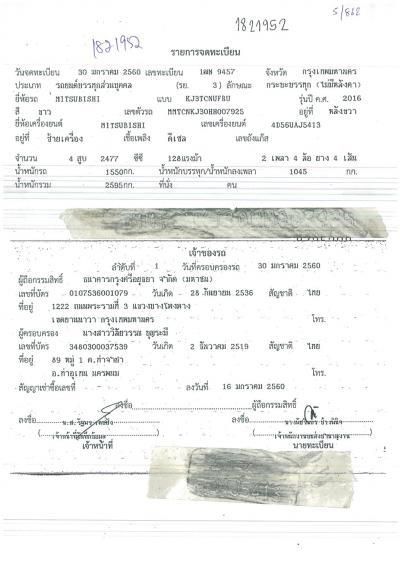 5/862
1821952
1821952
รายการจดทะเบียน
วันจดทะเบียน 30 มกราคม 2560 เลขทะเบียน 9457 จังหวัด กรุงเทพมหานคร
ประเภท รถยนต์บรรทุกส่วนบุคคล (รย. 3) ลักษณะ กระบะบรรทุก (ไม่มีหลังคา)
ยี่ห้อรถ MITSUBISHI แบบ KJ3TCNUFRU รุ่นปี ค.ศ. 2016
สี ขาว เลขตัวรถ MMTCNKJ30HH007925 อยู่ที่ หลังขวา
ยี่ห้อเครื่องยนต์ MITSUBISHI เลขเครื่องยนต์ 4D56UAJ5413
อยู่ที่ ซ้ายเครื่อง เชื้อเพลิง ดีเซล เลขถังแก๊ส
จำนวน 4 สูบ 2477 ซีซี 128แรงม้า 2 เพลา 4 ล้อ ยาง 4 เส้น
น้ำหนักรถ 1550กก. น้ำหนักบรรทุก/น้ำหนักลงเพลา 1045 กก.
น้ำหนักรวม 2595กก. ที่นั่ง คน
เจ้าของรถ
ลำดับที่ 1 วันที่ครอบครองรถ 30 มกราคม 2560
ผู้ถือกรรมสิทธิ์ ธนาคารกรุงศรีอยุธยา จำกัด (มหาชน)
เลขที่บัตร 0107536001079 วันเกิด 28 กันยายน 2536 สัญชาติ ไทย
ที่อยู่ 1222 ถนนพระรามที่ 3 แขวงบางโพงพาง
เขตยานนาวา กรุงเทพมหานคร โทร.
ผู้ครอบครอง นางสาววิลัยวรรณ
เลขที่บัตร 3480300037539 วันเกิด 2 ธันวาคม 2519 สัญชาติ ไทย
ที่อยู่ 89 หมู่ 1 ต.ท่าจำปา
อ.ท่าอุเทน นครพนม โทร.
สัญญาเช่าซื้อเลขที่ ลงวันที่ 16 มกราคม 2560
ลงชื่อ ผู้ถือกรรมสิทธิ์
ลงชื่อ ลงชื่อ
เจ้าหน้าที่ นายทะเบียน